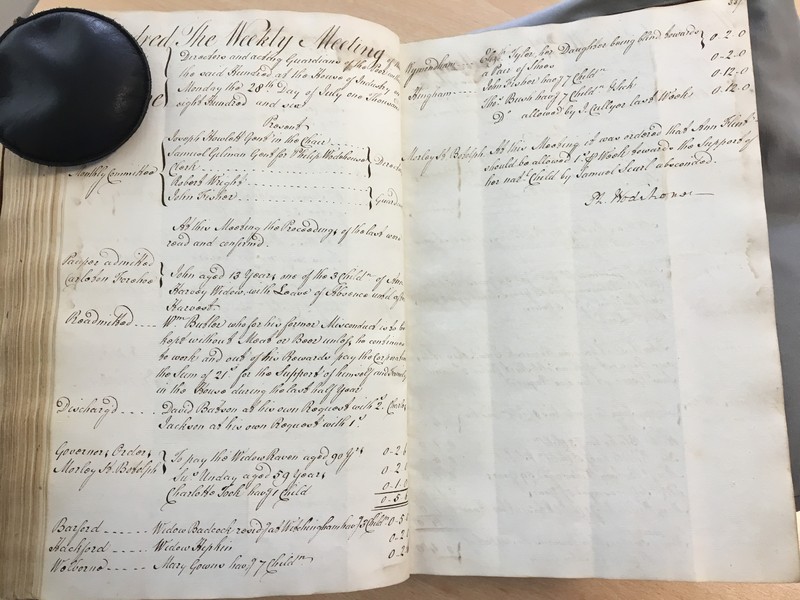 The Weekly Meeting of the
Directors and acting Guardians of the Poor within
the said Hundred at the House of Industry on
Monday the 28th Day of July one Thousand
eight Hundred and six
Present
Joseph Howlett Gent in the Chair
Samuel Gilman Gent for Philip Wodehouse
Clerk
Monthly Committee
Robert Wright
John Fisher
At this Meeting the Proceedings of the last were
read and confirmed.
Pauper admitted
Carleton Forehoe
John aged 13 Years one of the 3 Childn of Ann
Harvey Widow, with Leave of Absence until after
Harvest
Readmitted Wm Butler who for his former Misconduct is to be
kept without Meat or Beer unless he continues
to work and out of his Rewards pay the Corporation
the Sum of 21s for the Support of himself and Family
in the House during the last half Year
Dischargd David Batson at his own Request with 2s
Jackson at his own Request with 1s
Governors Orders
Morley St. Botolph
To pay the Widow Raven aged 90 Yrs 0-2
Sus Unday aged 59 Years 0-2
Charlotte havg 1 Child 0-1
0-5
Barford Widow Badcock resid at Witchingham havg 5 Childn 0-5
Hackford Widow Hipkin 0-2
Welborne Mary Gowns havg 7 Childn 0-2
Wymondham Tyler, her Daughter being blind towards
a Pair of Shoes 0-2-0
Hingham John Fisher havg 7 Childn 0-2-0
Thos Brush havg 7 Childn Sick 0-12-0
Do allowed by J. Cullyer last Week 0-12-0
Morley St Botolph At this Meeting it was ordered that Ann Flint
should be allowed Week towards the Support of
her natl Child by Samuel Scurl absconded.